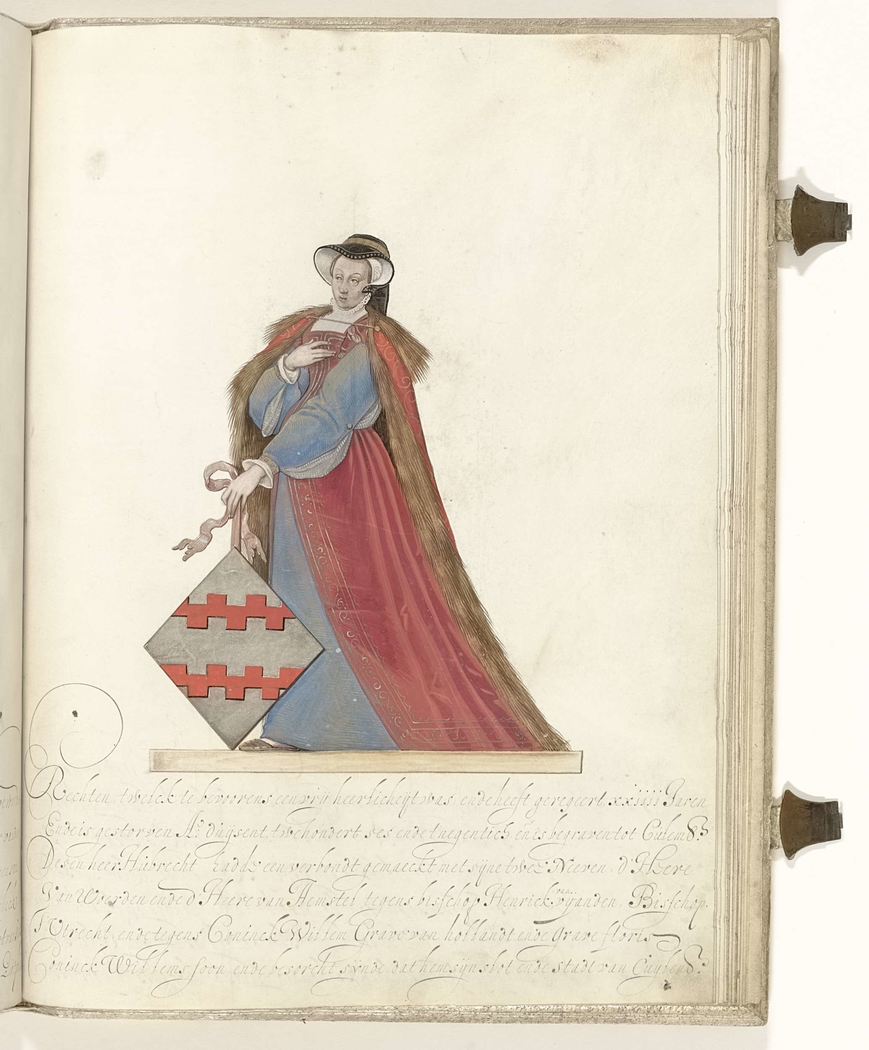 Rechten, twelck te bevoorens een vrij heerlicheijt was, ende heeft geregeert, xxiiii Jaren
Ende is gestorven Aº duijsent twehondert ses ende tnegentich en is begraven tot Culemb
Desen heer Hubrecht hadde een verbondt gemaeckt met sijne twee Neeven d Heere
Van Woerden ende d Heere van Aemstel tegens bisschop Henrick van Vijanden, Bisschop
Tutrecht ende tegens Coninck Willem Grave van hollandt ende Grave floris
Coninck Willems soon, ende besorcht sijnde dat hem sijn slot ende stadt van